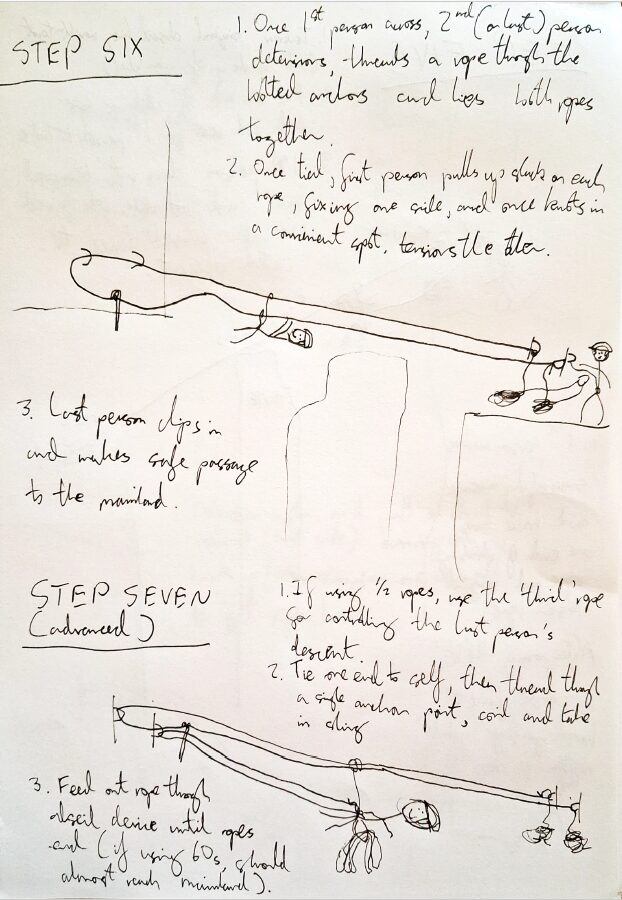 STEP SIX
1. Once 1st person across, 2nd (or last) person
detensions, threads a rope through the
bolted anchors and ties both ropes
together.
2. Once tied, first person pulls up slack on each
rope, fixing one side, and once knots in
a convenient spot, tensions the other.
3. Last person clips in
and makes safe passage
to the mainland.
STEP SEVEN
(advanced)
1. If using 1/2 ropes, use the 'third' rope
for controlling the last person's
descent.
2. Tie one end to self, then thread through
a single anchor point, coil and take
in sling
3. Feed out rope through
abseil device until ropes
end (if using 60s, should
almost reach mainland).